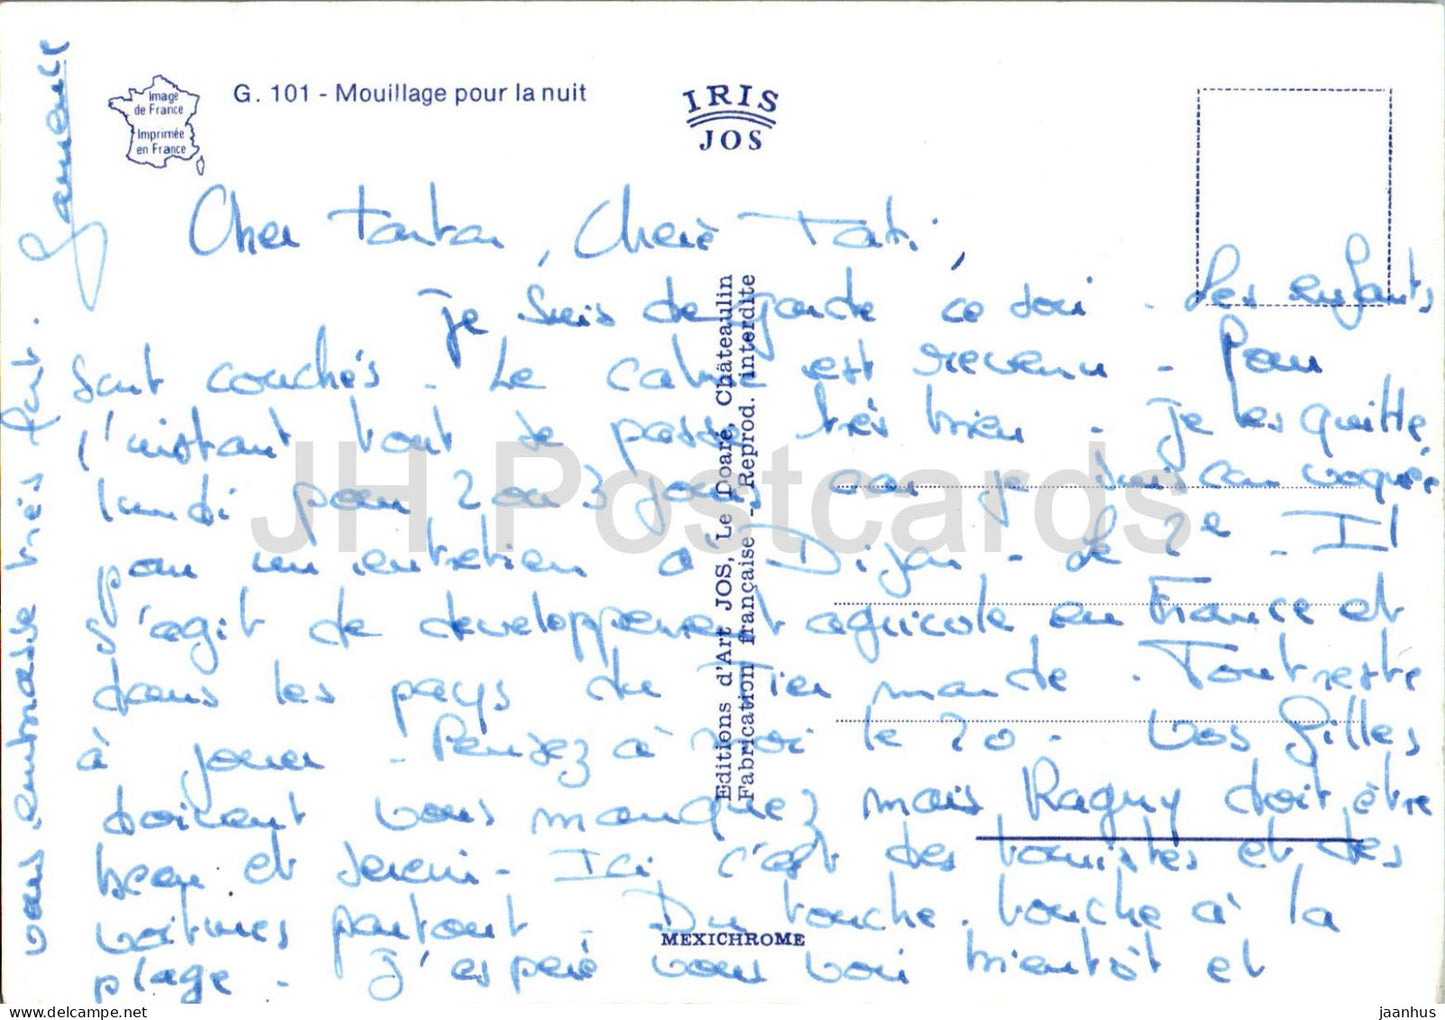 Image
de France
Imprimée
en France
G. 101 - Mouillage pour la nuit
IRIS
JOS
Cher Tonton, Chère Tati,
Je suis de garde ce soir - Les enfants
sont couchés - Le calme est revenu - Pour
l'instant tout se passe très bien - Je les quitte
lundi pour 2 ou 3 jours car je suis convoquée
pour un entretien à Dijon - Le 2e - Il
s'agit de développement agricole en France et
dans les pays du Tier monde. Tout reste
à jouer - Pensez à moi le 20 - Vos filles
doivent vous manquez mais Raguy doit être
beau et serein - Ici c'est des touristes et des
voitures partout - Du touche-touche à la
plage - J'espère vous voir bientôt et
vous embrasse très fort.
Editions d'Art JOS, Le Doaré, Châteaulin
Fabrication française - Reprod. interdite
MEXICHROME
JH Postcards
delcampe.net
jaanhus